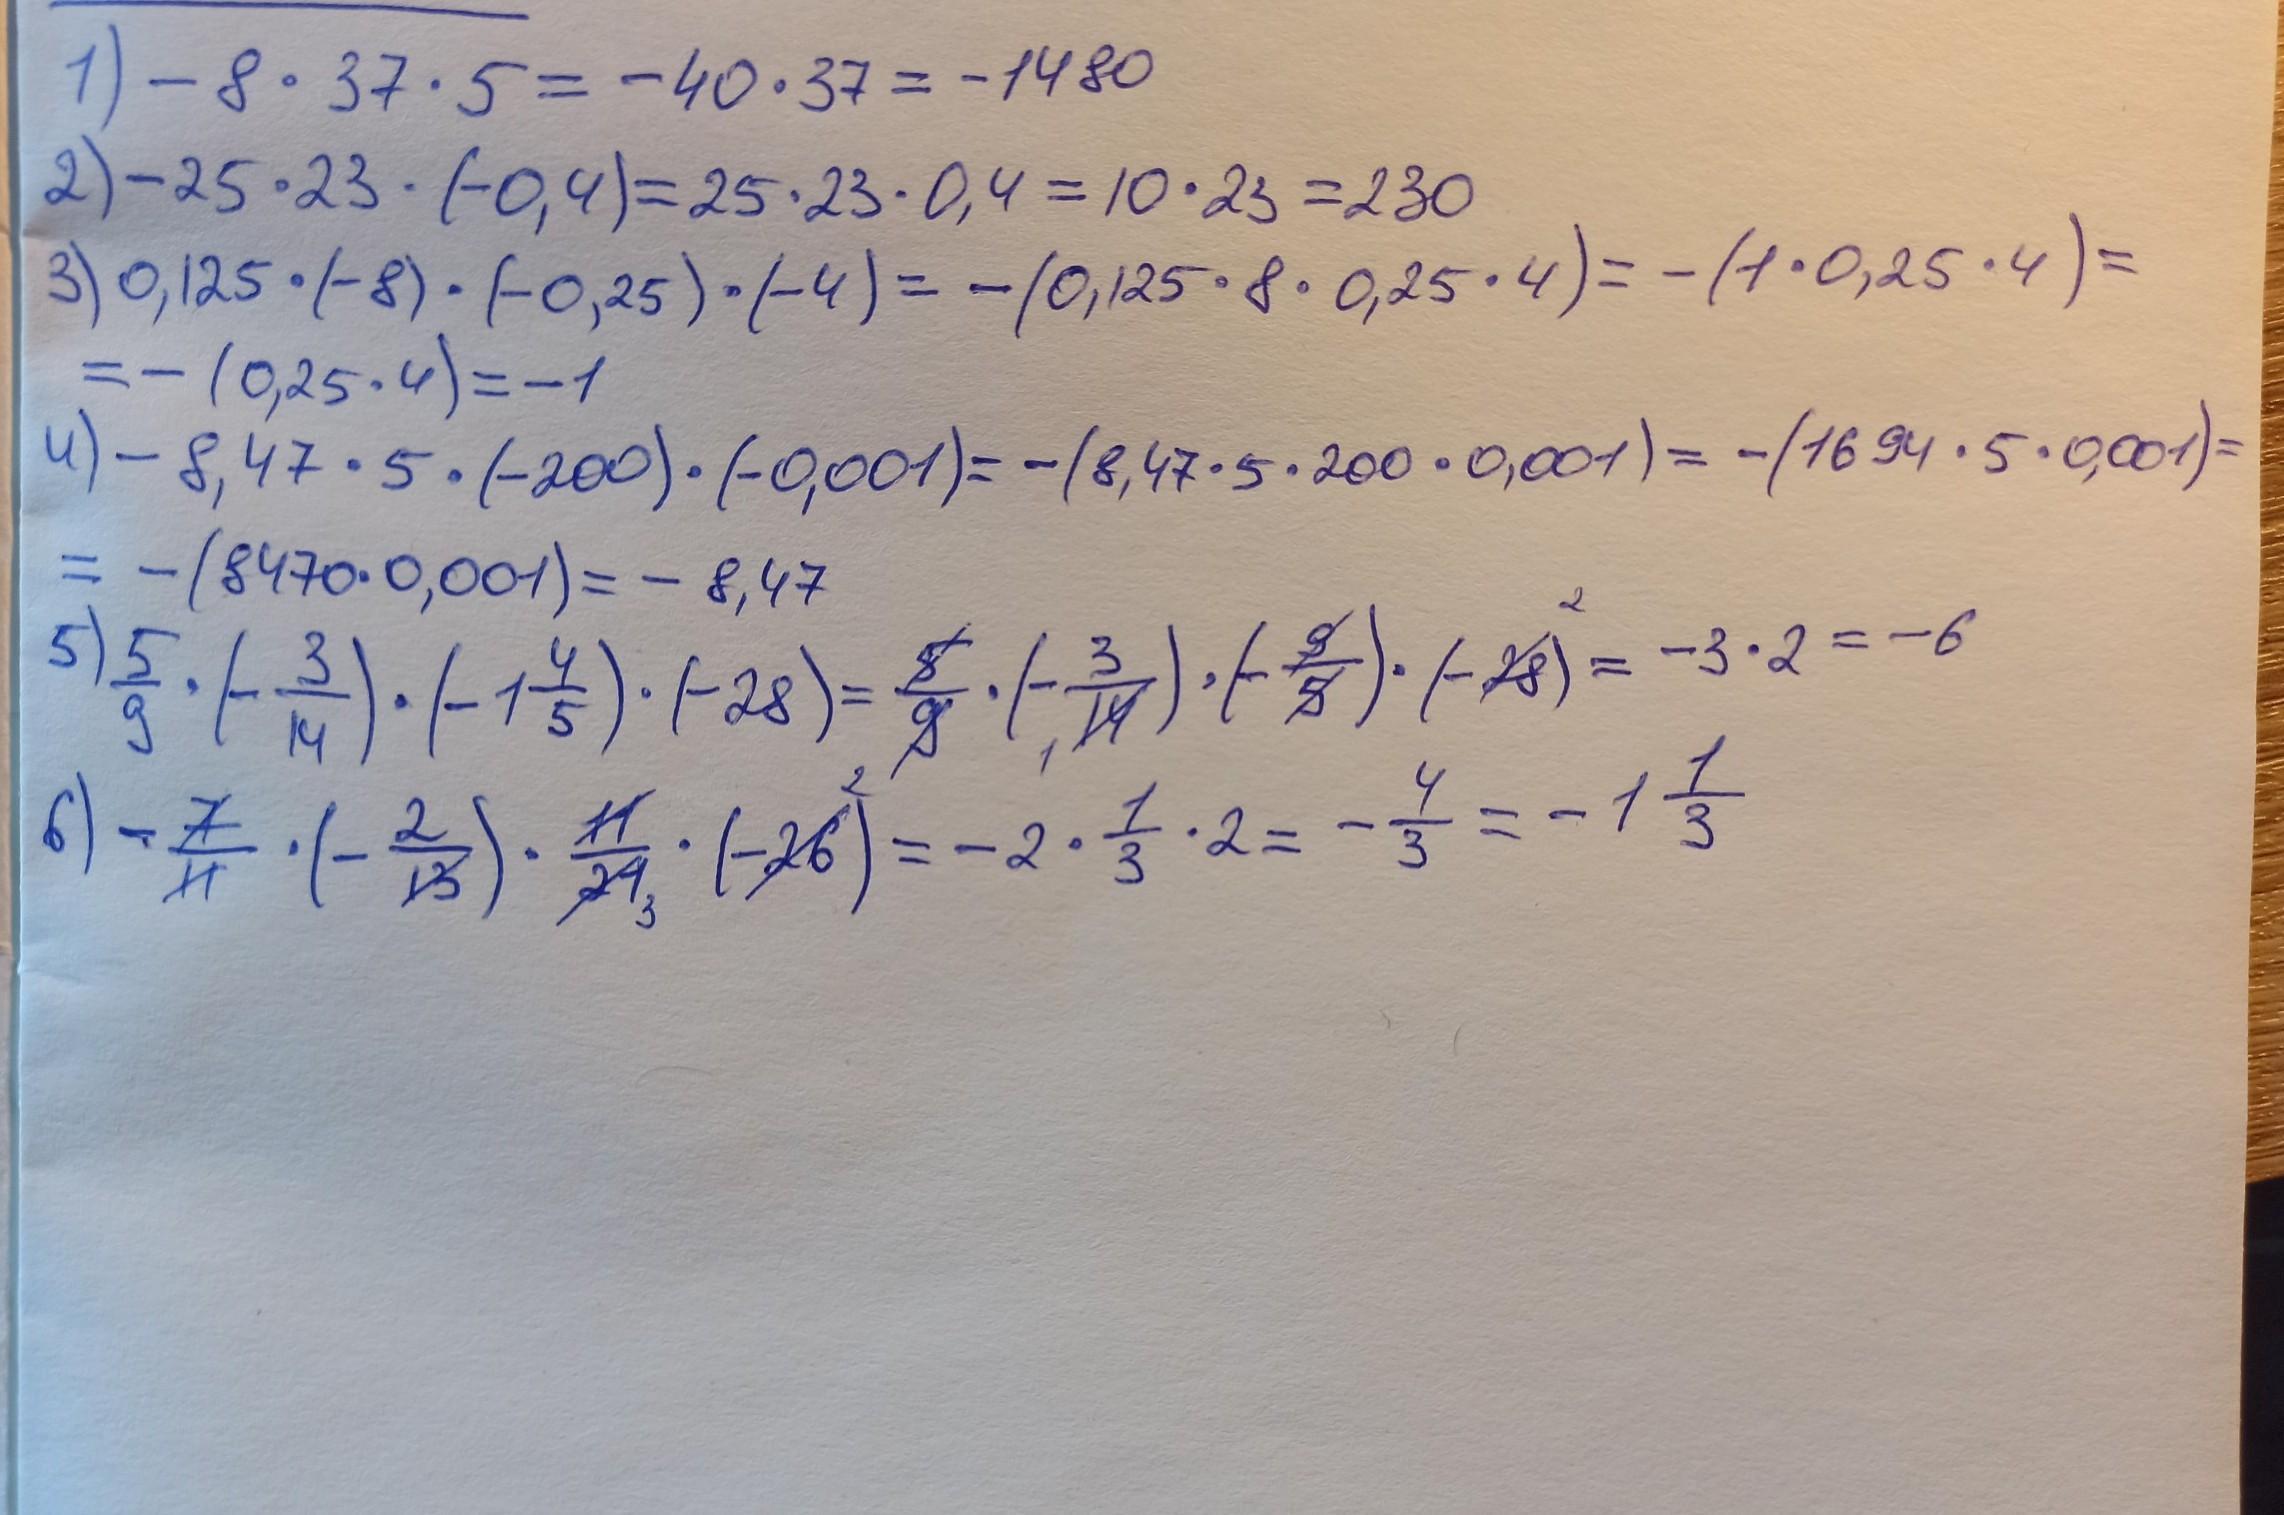 1) - 8 · 37 · 5 = - 40 · 37 = - 1480
2) - 25 · 23 · (-0,4) = 25 · 23 · 0,4 = 10 · 23 = 230
3) 0,125 · (-8) · (-0,25) · (-4) = - (0,125 · 8 · 0,25 · 4) = - (1 · 0,25 · 4) =
= - (0,25 · 4) = - 1
4) - 8,47 · 5 · (-200) · (-0,001) = - (8,47 · 5 · 200 · 0,001) = - (1694 · 5 · 0,001) =
= - (8470 · 0,001) = - 8,47
5) 5/9 · (- 3/14) · (- 1 4/5) · (-28) = 5/9 · (- 3/14 1) · (- 9/5) · (-28) 2 = - 3 · 2 = - 6
6) - 7/11 · (- 2/13) · 11/21 3 · (-26) 2 = - 2 · 1/3 · 2 = - 4/3 = - 1 1/3